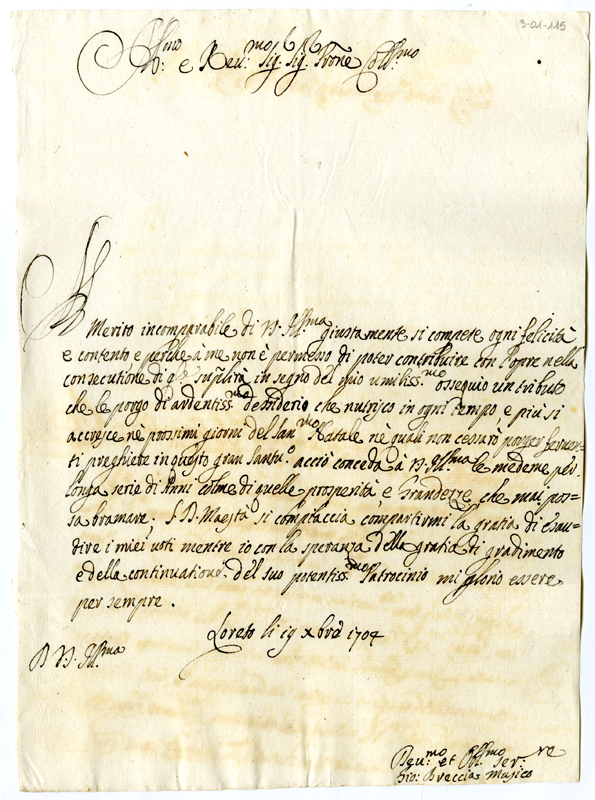 3-01-115
Ill.mo e Rev.mo Sig. Sig. Prone Coll.mo
Al Merito incomparabile di V. Ill.ma giustamente si compete ogni felicità
e contento e perche à me non è permesso di poter contribuire con l'opre nella
consecutione di supplirà in segno del mio umiliss.mo ossequio un tributo
che le porgo di ardentiss.mo desiderio che nutrisco in ogni tempo e più si
accresce nè prossimi giorni del San.mo Natale nè quali non cessarò porger ferven=
ti preghiere in questo gran Santu.o acciò conceda à V. Ill.ma le medeme per
longa serie di Anni colme di quelle prosperità e Grandezze che mai pos=
sa bramare; S. D. Maestà si compiaccia compartirmi la gratia di esau=
dire i miei voti mentre io con la speranza della gratia di gradimento
e della continuatione del suo potentiss.mo Patrocinio mi glorio essere
per sempre.
Loreto li 19 xbre 1704
D V. Ill.ma
Dev.mo et Obl.mo Ser.re
Gio: Breccia Musico